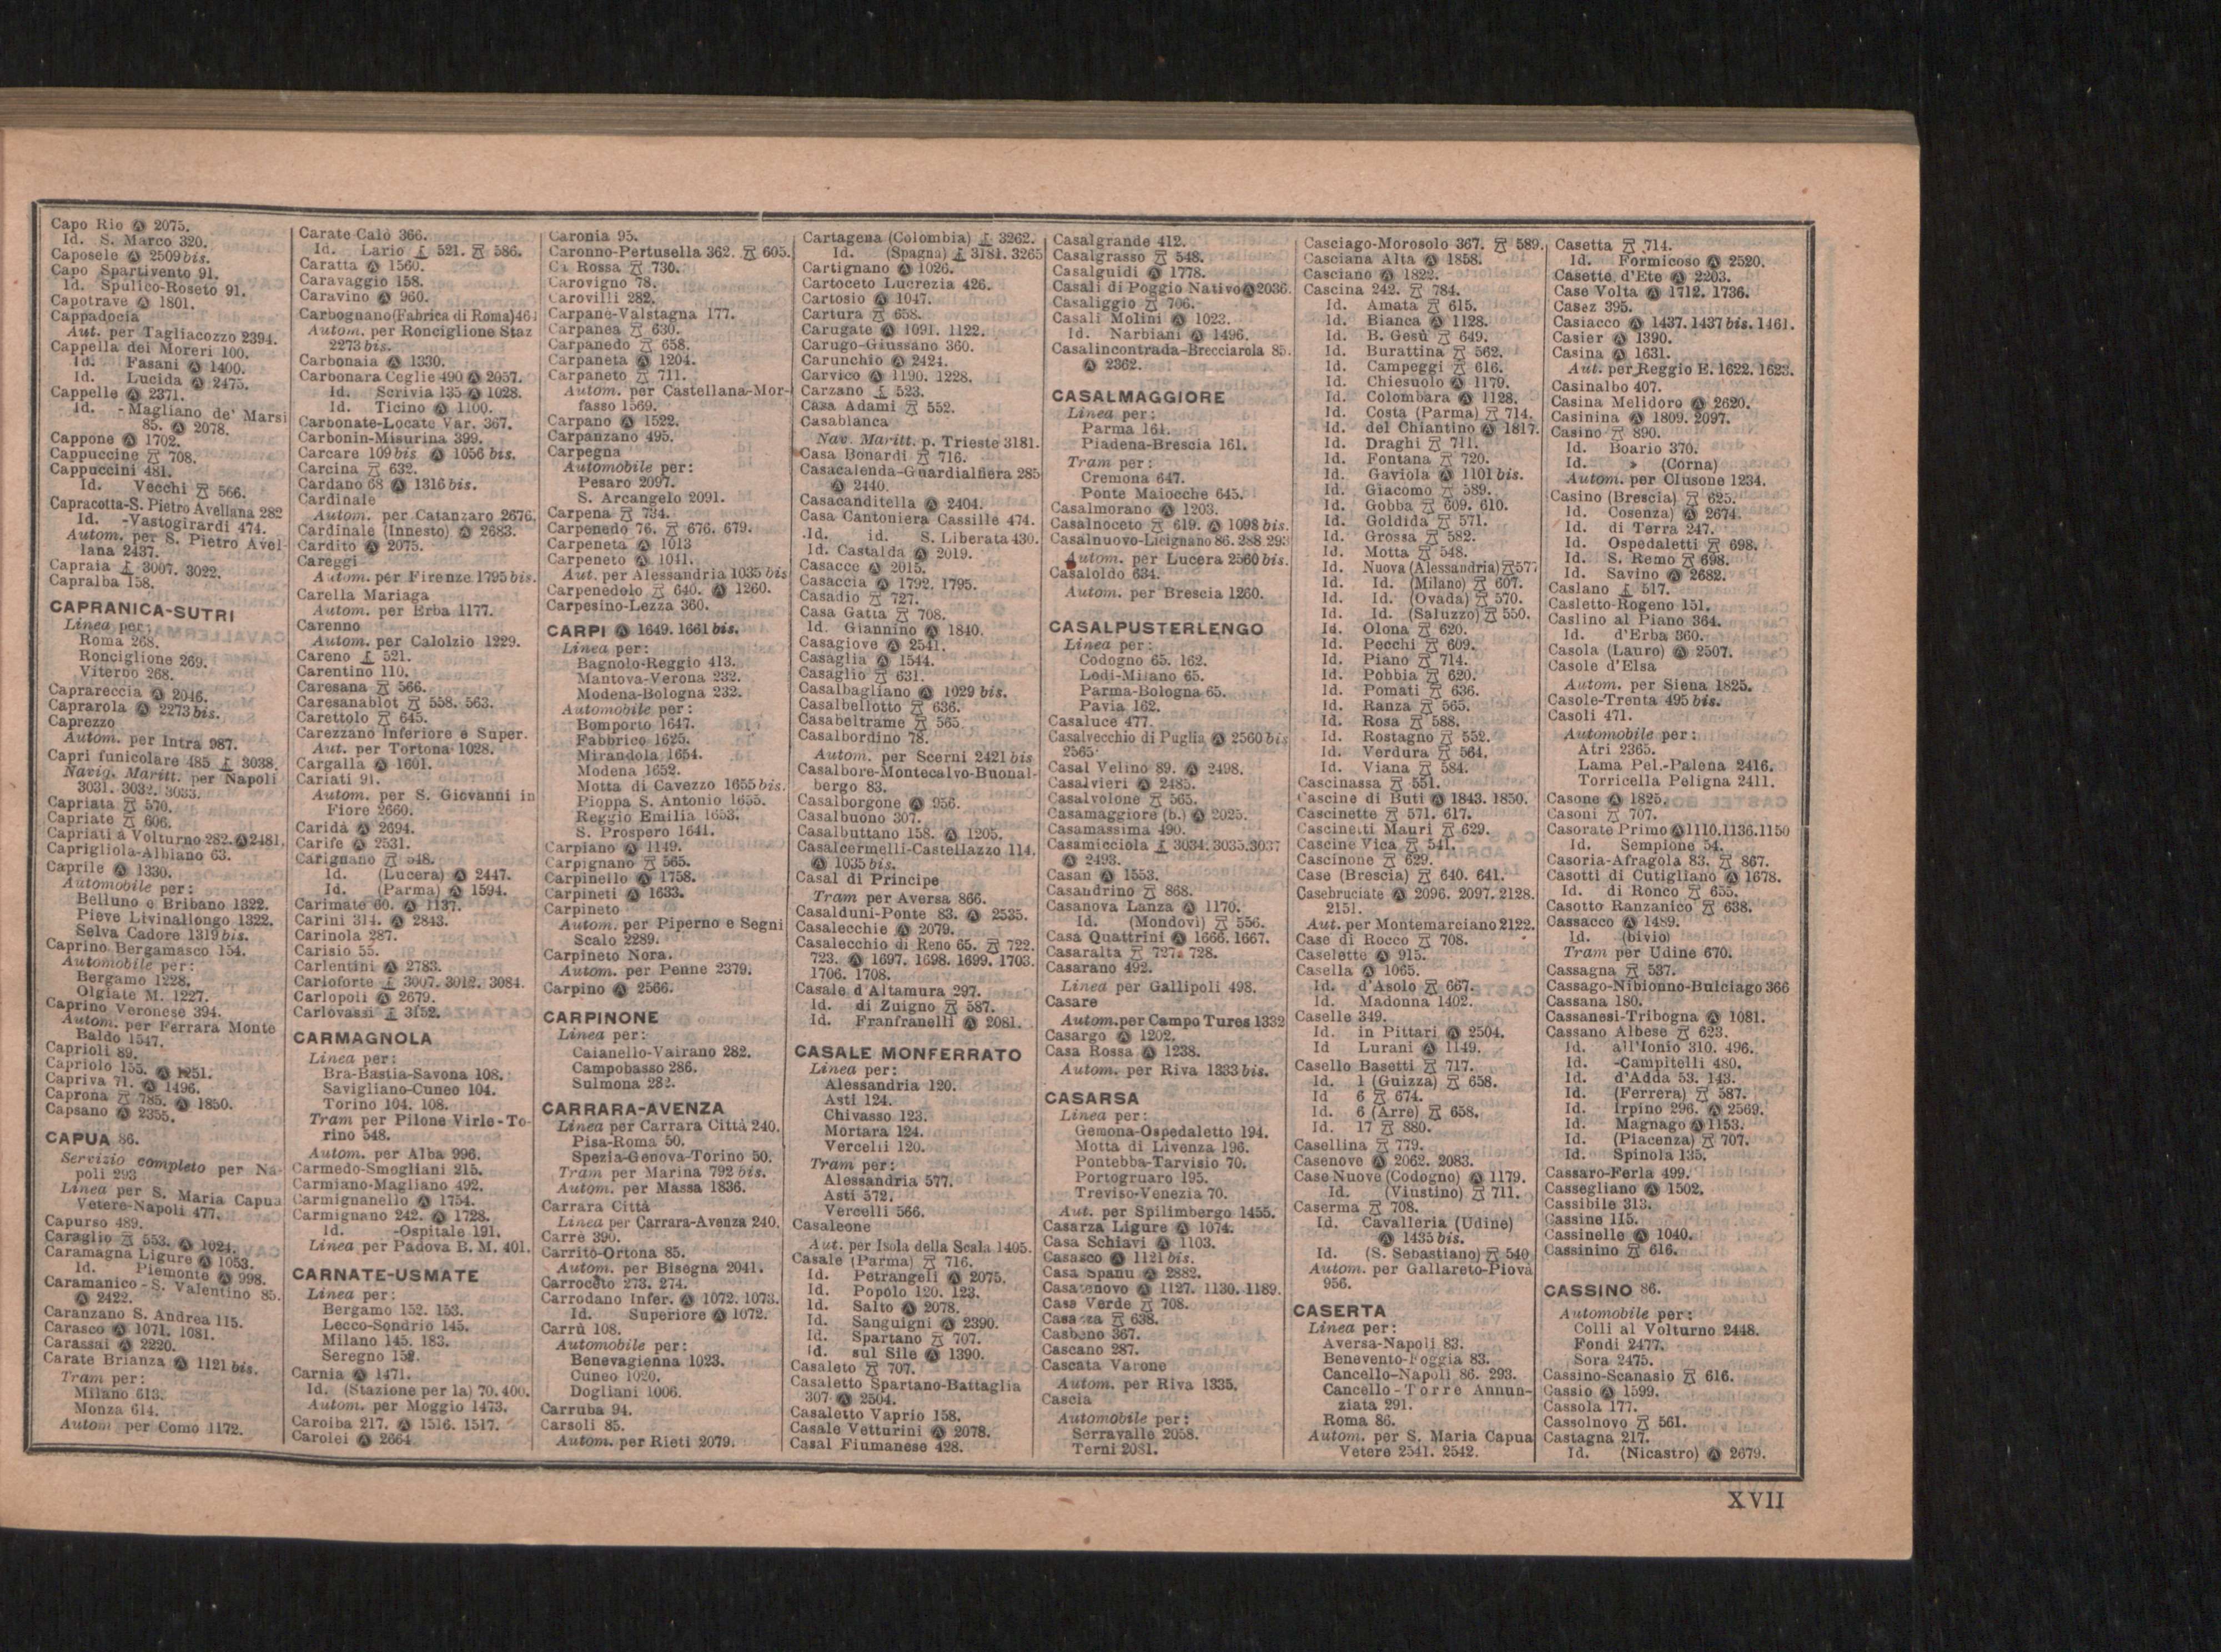 Capo Rio Ⓐ 2075.
Id. S. Marco 320.
Caposele Ⓐ 2509 bis.
Capo Spartivento 91.
Id. Spulico-Roseto 91.
Capotrave Ⓐ 1801.
Cappadocia
Aut. per Tagliacozzo 2394.
Cappella dei Moreri 100.
Id. Fasani Ⓐ 1400.
Id. Lucida Ⓐ 2475.
Cappelle Ⓐ 2371.
Id. - Magliano de' Marsi
85. Ⓐ 2078.
Cappone Ⓐ 1702.
Cappuccine 708.
Cappuccini 481.
Id. Vecchi 566.
Capracotta-S. Pietro Avellana 282
Id. -Vastogirardi 474.
Autom. per S. Pietro Avel-
lana 2437.
Capraia 3007. 3022.
Capralba 158.
CAPRANICA-SUTRI
Linea per:
Roma 268.
Ronciglione 269.
Viterbo 268.
Caprareccia Ⓐ 2046.
Caprarola Ⓐ 2273 bis.
Caprezzo
Autom. per Intra 987.
Capri funicolare 485 3038.
Navig. Maritt. per Napoli
3031. 3032. 3033.
Capriata 570.
Capriate 606.
Capriati a Volturno 282. Ⓐ 2481.
Caprigliola-Albiano 63.
Caprile Ⓐ 1330.
Automobile per:
Belluno e Bribano 1322.
Pieve Livinallongo 1322.
Selva Cadore 1319 bis.
Caprino Bergamasco 154.
Automobile per:
Bergamo 1228.
Olgiate M. 1227.
Caprino Veronese 394.
Autom. per Ferrara Monte
Baldo 1547.
Caprioli 89.
Capriolo 155. Ⓐ 1251.
Capriva 71. Ⓐ 1496.
Caprona 785. Ⓐ 1850.
Capsano Ⓐ 2355.
CAPUA 86.
Servizio completo per Na-
poli 293
Linea per S. Maria Capua
Vetere-Napoli 477.
Capurso 489.
Caraglio 553. Ⓐ 1024.
Caramagna Ligure Ⓐ 1053.
Id. Piemonte Ⓐ 998.
Caramanico - S. Valentino 85.
Ⓐ 2422.
Caranzano S. Andrea 115.
Carasco Ⓐ 1071. 1081.
Carassai Ⓐ 2220.
Carate Brianza Ⓐ 1121 bis.
Tram per:
Milano 613.
Monza 614.
Autom per Como 1172.
Carate Calò 366.
Id. Lario 521. 586.
Caratta Ⓐ 1560.
Caravaggio 158.
Caravino Ⓐ 960.
Carbognano (Fabrica di Roma)
Autom. per Ronciglione Staz
2273 bis.
Carbonaia Ⓐ 1330.
Carbonara Ceglie 490 Ⓐ 2057.
Id. Scrivia 135 Ⓐ 1028.
Id. Ticino Ⓐ 1100.
Carbonate-Locate Var. 367.
Carbonin-Misurina 399.
Carcare 109 bis Ⓐ 1056 bis.
Carcina 632.
Cardano 68 Ⓐ 1316 bis.
Cardinale
Autom. per Catanzaro 2676.
Cardinale (Innesto) Ⓐ 2683.
Cardito Ⓐ 2075.
Careggi
Autom. per Firenze 1795 bis.
Carella Mariaga
Autom. per Erba 1177.
Carenno
Autom. per Calolzio 1229.
Careno 521.
Carentino 110.
Caresana 566.
Caresanablot 558. 563.
Carettolo 645.
Carezzano Inferiore e Super.
Aut. per Tortona 1028.
Cargalla Ⓐ 1601.
Cariati 91.
Autom. per S. Giovanni in
Fiore 2660.
Caridà Ⓐ 2694.
Carife Ⓐ 2531.
Carignano 548.
Id. (Lucera) Ⓐ 2447.
Id. (Parma) Ⓐ 1594.
Carimate 60. Ⓐ 1137.
Carini 314. Ⓐ 2843.
Carinola 287.
Carisio 55.
Carlentini Ⓐ 2783.
Carloforte 3007. 3012. 3084.
Carlopoli Ⓐ 2679.
Carlovassi 3152.
CARMAGNOLA
Linea per:
Bra-Bastia-Savona 108.
Savigliano-Cuneo 104.
Torino 104. 108.
Tram per Pilone Virle-To-
rino 548.
Autom. per Alba 996.
Carmedo-Smogliani 215.
Carmiano-Magliano 492.
Carmignanello Ⓐ 1754.
Carmignano 242. Ⓐ 1728.
Id. -Ospitale 191.
Linea per Padova B. M. 401.
CARNATE-USMATE
Linea per:
Bergamo 152. 153.
Lecco-Sondrio 145.
Milano 145. 183.
Seregno 152.
Carnia Ⓐ 1471.
Id. (Stazione per la) 70. 400.
Autom. per Moggio 1473.
Caroiba 217. Ⓐ 1516. 1517.
Carolei Ⓐ 2664
Caronia 95.
Caronno-Pertusella 362. 605.
Ca Rossa 730.
Carovigno 78.
Carovilli 282.
Carpanè-Valstagna 177.
Carpanea 630.
Carpanedo 658.
Carpaneta Ⓐ 1204.
Carpaneto 711.
Autom. per Castellana-Mor-
fasso 1569.
Carpano Ⓐ 1522.
Carpanzano 495.
Carpegna
Automobile per:
Pesaro 2097.
S. Arcangelo 2091.
Carpena 734.
Carpenedo 76. 676. 679.
Carpeneta Ⓐ 1013
Carpeneto Ⓐ 1041.
Aut. per Alessandria 1035 bis
Carpenedolo 640. Ⓐ 1260.
Carpesino-Lezza 360.
CARPI Ⓐ 1649. 1661 bis.
Linea per:
Bagnolo-Reggio 413.
Mantova-Verona 232.
Modena-Bologna 232.
Automobile per:
Bomporto 1647.
Fabbrico 1625.
Mirandola 1654.
Modena 1652.
Motta di Cavezzo 1655 bis.
Pioppa S. Antonio 1655.
Reggio Emilia 1653.
S. Prospero 1641.
Carpiano Ⓐ 1149.
Carpignano 565.
Carpinello Ⓐ 1758.
Carpineti Ⓐ 1633.
Carpineto
Autom. per Piperno e Segni
Scalo 2289.
Carpineto Nora.
Autom. per Penne 2379.
Carpino Ⓐ 2566.
CARPINONE
Linea per:
Caianello-Vairano 282.
Campobasso 286.
Sulmona 282.
CARRARA-AVENZA
Linea per Carrara Città 240.
Pisa-Roma 50.
Spezia-Genova-Torino 50.
Tram per Marina 792 bis.
Autom. per Massa 1836.
Carrara Città
Linea per Carrara-Avenza 240.
Carrè 390.
Carrito-Ortona 85.
Autom. per Bisegna 2041.
Carroceto 273. 274.
Carrodano Infer. Ⓐ 1072. 1073.
Id. Superiore Ⓐ 1072.
Carrù 108.
Automobile per:
Benevagienna 1023.
Cuneo 1020.
Dogliani 1006.
Carruba 94.
Carsoli 85.
Autom. per Rieti 2079.
Cartagena (Colombia) 3262.
Id. (Spagna) 3181. 3265
Cartignano Ⓐ 1026.
Cartoceto Lucrezia 426.
Cartosio Ⓐ 1047.
Cartura 658.
Carugate Ⓐ 1091. 1122.
Carugo-Giussano 360.
Carunchio Ⓐ 2424.
Carvico Ⓐ 1190. 1228.
Carzano 523.
Casa Adami 552.
Casablanca
Nav. Maritt. p. Trieste 3181.
Casa Bonardi 716.
Casacalenda-Guardialfiera 285
Ⓐ 2440.
Casacanditella Ⓐ 2404.
Casa Cantoniera Cassille 474.
Id. id. S. Liberata 430.
Id. Castalda Ⓐ 2019.
Casacce Ⓐ 2015.
Casaccia Ⓐ 1792. 1795.
Casadio 727.
Casa Gatta 708.
Id. Giannino Ⓐ 1840.
Casagiove Ⓐ 2541.
Casaglia Ⓐ 1544.
Casaglio 631.
Casalbagliano Ⓐ 1029 bis.
Casalbellotto 636.
Casabeltrame 565.
Casalbordino 78.
Autom. per Scerni 2421 bis
Casalbore-Montecalvo-Buonal-
bergo 83.
Casalborgone Ⓐ 956.
Casalbuono 307.
Casalbuttano 158. Ⓐ 1205.
Casalcermelli-Castellazzo 114.
Ⓐ 1035 bis.
Casal di Principe
Tram per Aversa 866.
Casalduni-Ponte 83. Ⓐ 2535.
Casalecchie Ⓐ 2079.
Casalecchio di Reno 65. 722.
723. Ⓐ 1697. 1698. 1699. 1703.
1706. 1708.
Casale d'Altamura 297.
Id. di Zuigno 587.
Id. Franfranelli Ⓐ 2081.
CASALE MONFERRATO
Linea per:
Alessandria 120.
Asti 124.
Chivasso 123.
Mortara 124.
Vercelli 120.
Tram per:
Alessandria 577.
Asti 572.
Vercelli 566.
Casaleone
Aut. per Isola della Scala 1405.
Casale (Parma) 716.
Id. Petrangeli Ⓐ 2075.
Id. Popolo 120. 123.
Id. Salto Ⓐ 2078.
Id. Sanguigni Ⓐ 2390.
Id. Spartano 707.
Id. sul Sile Ⓐ 1390.
Casaleto 707.
Casaletto Spartano-Battaglia
307 Ⓐ 2504.
Casaletto Vaprio 158.
Casale Vetturini Ⓐ 2078.
Casal Fiumanese 428.
Casalgrande 412.
Casalgrasso 548.
Casalguidi Ⓐ 1778.
Casali di Poggio Nativo Ⓐ 2036.
Casaliggio 706.
Casali Molini Ⓐ 1023.
Id. Narbiani Ⓐ 1496.
Casalincontrada-Brecciarola 85.
Ⓐ 2362.
CASALMAGGIORE
Linea per:
Parma 161.
Piadena-Brescia 161.
Tram per:
Cremona 647.
Ponte Maiocche 645.
Casalmorano Ⓐ 1203.
Casalnoceto 619. Ⓐ 1098 bis.
Casalnuovo-Licignano 86. 288 293
Autom. per Lucera 2560 bis.
Casaloldo 634.
Autom. per Brescia 1260.
CASALPUSTERLENGO
Linea per:
Codogno 65. 162.
Lodi-Milano 65.
Parma-Bologna 65.
Pavia 162.
Casaluce 477.
Casalvecchio di Puglia Ⓐ 2560 bis
2565
Casal Velino 89. Ⓐ 2498.
Casalvieri Ⓐ 2485.
Casalvolone 565.
Casamaggiore (b.) Ⓐ 2025.
Casamassima 490.
Casamicciola 3034. 3035. 3037
Ⓐ 2493.
Casan Ⓐ 1553.
Casandrino 868.
Casanova Lanza Ⓐ 1170.
Id. (Mondovì) 556.
Casa Quattrini Ⓐ 1666. 1667.
Casaralta 727. 728.
Casarano 492.
Linea per Gallipoli 498.
Casare
Autom. per Campo Tures 1332
Casargo Ⓐ 1202.
Casa Rossa Ⓐ 1238.
Autom. per Riva 1333 bis.
CASARSA
Linea per:
Gemona-Ospedaletto 194.
Motta di Livenza 196.
Pontebba-Tarvisio 70.
Portogruaro 195.
Treviso-Venezia 70.
Aut. per Spilimbergo 1455.
Casarza Ligure Ⓐ 1074.
Casa Schiavi Ⓐ 1103.
Casasco Ⓐ 1121 bis.
Casa Spanu Ⓐ 2882.
Casatenovo Ⓐ 1127. 1130. 1189.
Casa Verde 708.
Casazza 638.
Casbeno 367.
Cascano 287.
Cascata Varone
Autom. per Riva 1335.
Cascia
Automobile per:
Serravalle 2058.
Terni 2081.
Casciago-Morosolo 367. 589.
Casciana Alta Ⓐ 1858.
Casciano Ⓐ 1822.
Cascina 242. 784.
Id. Amata 615.
Id. Bianca Ⓐ 1128.
Id. B. Gesù 649.
Id. Burattina 562.
Id. Campeggi 616.
Id. Chiesuolo Ⓐ 1179.
Id. Colombara Ⓐ 1128.
Id. Costa (Parma) 714.
Id. del Chiantino Ⓐ 1817.
Id. Draghi 711.
Id. Fontana 720.
Id. Gaviola Ⓐ 1101 bis.
Id. Giacomo 589.
Id. Gobba 609. 610.
Id. Goldida 571.
Id. Grossa 582.
Id. Motta 548.
Id. Nuova (Alessandria) 577
Id. Id. (Milano) 607.
Id. Id. (Ovada) 570.
Id. Id. (Saluzzo) 550.
Id. Olona 620.
Id. Pecchi 609.
Id. Piano 714.
Id. Pobbia 620.
Id. Pomati 636.
Id. Ranza 565.
Id. Rosa 588.
Id. Rostagno 552.
Id. Verdura 564.
Id. Viana 584.
Cascinassa 551.
Cascine di Buti Ⓐ 1843. 1850.
Cascinette 571. 617.
Cascinetti Mauri 629.
Cascine Vica 541.
Cascinone 629.
Case (Brescia) 640. 641.
Casebruciate Ⓐ 2096. 2097. 2128.
2151.
Aut. per Montemarciano 2122.
Case di Rocco 708.
Caselette Ⓐ 915.
Casella Ⓐ 1065.
Id. d'Asolo 667.
Id. Madonna 1402.
Caselle 349.
Id. in Pittari Ⓐ 2504.
Id Lurani Ⓐ 1149.
Casello Basetti 717.
Id. 1 (Guizza) 658.
Id 6 674.
Id. 6 (Arre) 658.
Id. 17 880.
Casellina 779.
Casenove Ⓐ 2062. 2083.
Case Nuove (Codogno) Ⓐ 1179.
Id. (Viustino) 711.
Caserma 708.
Id. Cavalleria (Udine)
Ⓐ 1435 bis.
Id. (S. Sebastiano) 540
Autom. per Gallareto-Piovà
956.
CASERTA
Linea per:
Aversa-Napoli 83.
Benevento-Foggia 83.
Cancello-Napoli 86. 293.
Cancello-Torre Annun-
ziata 291.
Roma 86.
Autom. per S. Maria Capua
Vetere 2541. 2542.
Casetta 714.
Id. Formicoso Ⓐ 2520.
Casette d'Ete Ⓐ 2203.
Case Volta Ⓐ 1712. 1736.
Casez 395.
Casiacco Ⓐ 1437. 1437 bis. 1461.
Casier Ⓐ 1390.
Casina Ⓐ 1631.
Aut. per Reggio E. 1622. 1623.
Casinalbo 407.
Casina Melidoro Ⓐ 2620.
Casinina Ⓐ 1809. 2097.
Casino 890.
Id. Boario 370.
Id. » (Corna)
Autom. per Clusone 1234.
Casino (Brescia) 625.
Id. Cosenza) Ⓐ 2674.
Id. di Terra 247.
Id. Ospedaletti 698.
Id. S. Remo 698.
Id. Savino Ⓐ 2682.
Caslano 517.
Casletto-Rogeno 151.
Caslino al Piano 364.
Id. d'Erba 360.
Casola (Lauro) Ⓐ 2507.
Casole d'Elsa
Autom. per Siena 1825.
Casole-Trenta 495 bis.
Casoli 471.
Automobile per:
Atri 2365.
Lama Pel.-Palena 2416.
Torricella Peligna 2411.
Casone Ⓐ 1825.
Casoni 707.
Casorate Primo Ⓐ 1110. 1136. 1150
Id. Sempione 54.
Casoria-Afragola 83. 867.
Casotti di Cutigliano Ⓐ 1678.
Id. di Ronco 655.
Casotto Ranzanico 638.
Cassacco Ⓐ 1489.
Id. (bivio)
Tram per Udine 670.
Cassagna 537.
Cassago-Nibionno-Bulciago 366
Cassana 180.
Cassanesi-Tribogna Ⓐ 1081.
Cassano Albese 623.
Id. all'Ionio 310. 496.
Id. -Campitelli 480.
Id. d'Adda 53. 143.
Id. (Ferrera) 587.
Id. Irpino 296. Ⓐ 2569.
Id. Magnago Ⓐ 1153.
Id. (Piacenza) 707.
Id. Spinola 135.
Cassaro-Ferla 499.
Cassegliano Ⓐ 1502.
Cassibile 313.
Cassine 115.
Cassinelle Ⓐ 1040.
Cassinino 616.
CASSINO 86.
Automobile per:
Colli al Volturno 2448.
Fondi 2477.
Sora 2475.
Cassino-Scanasio 616.
Cassio Ⓐ 1599.
Cassola 177.
Cassolnovo 561.
Castagna 217.
Id. (Nicastro) Ⓐ 2679.
XVII